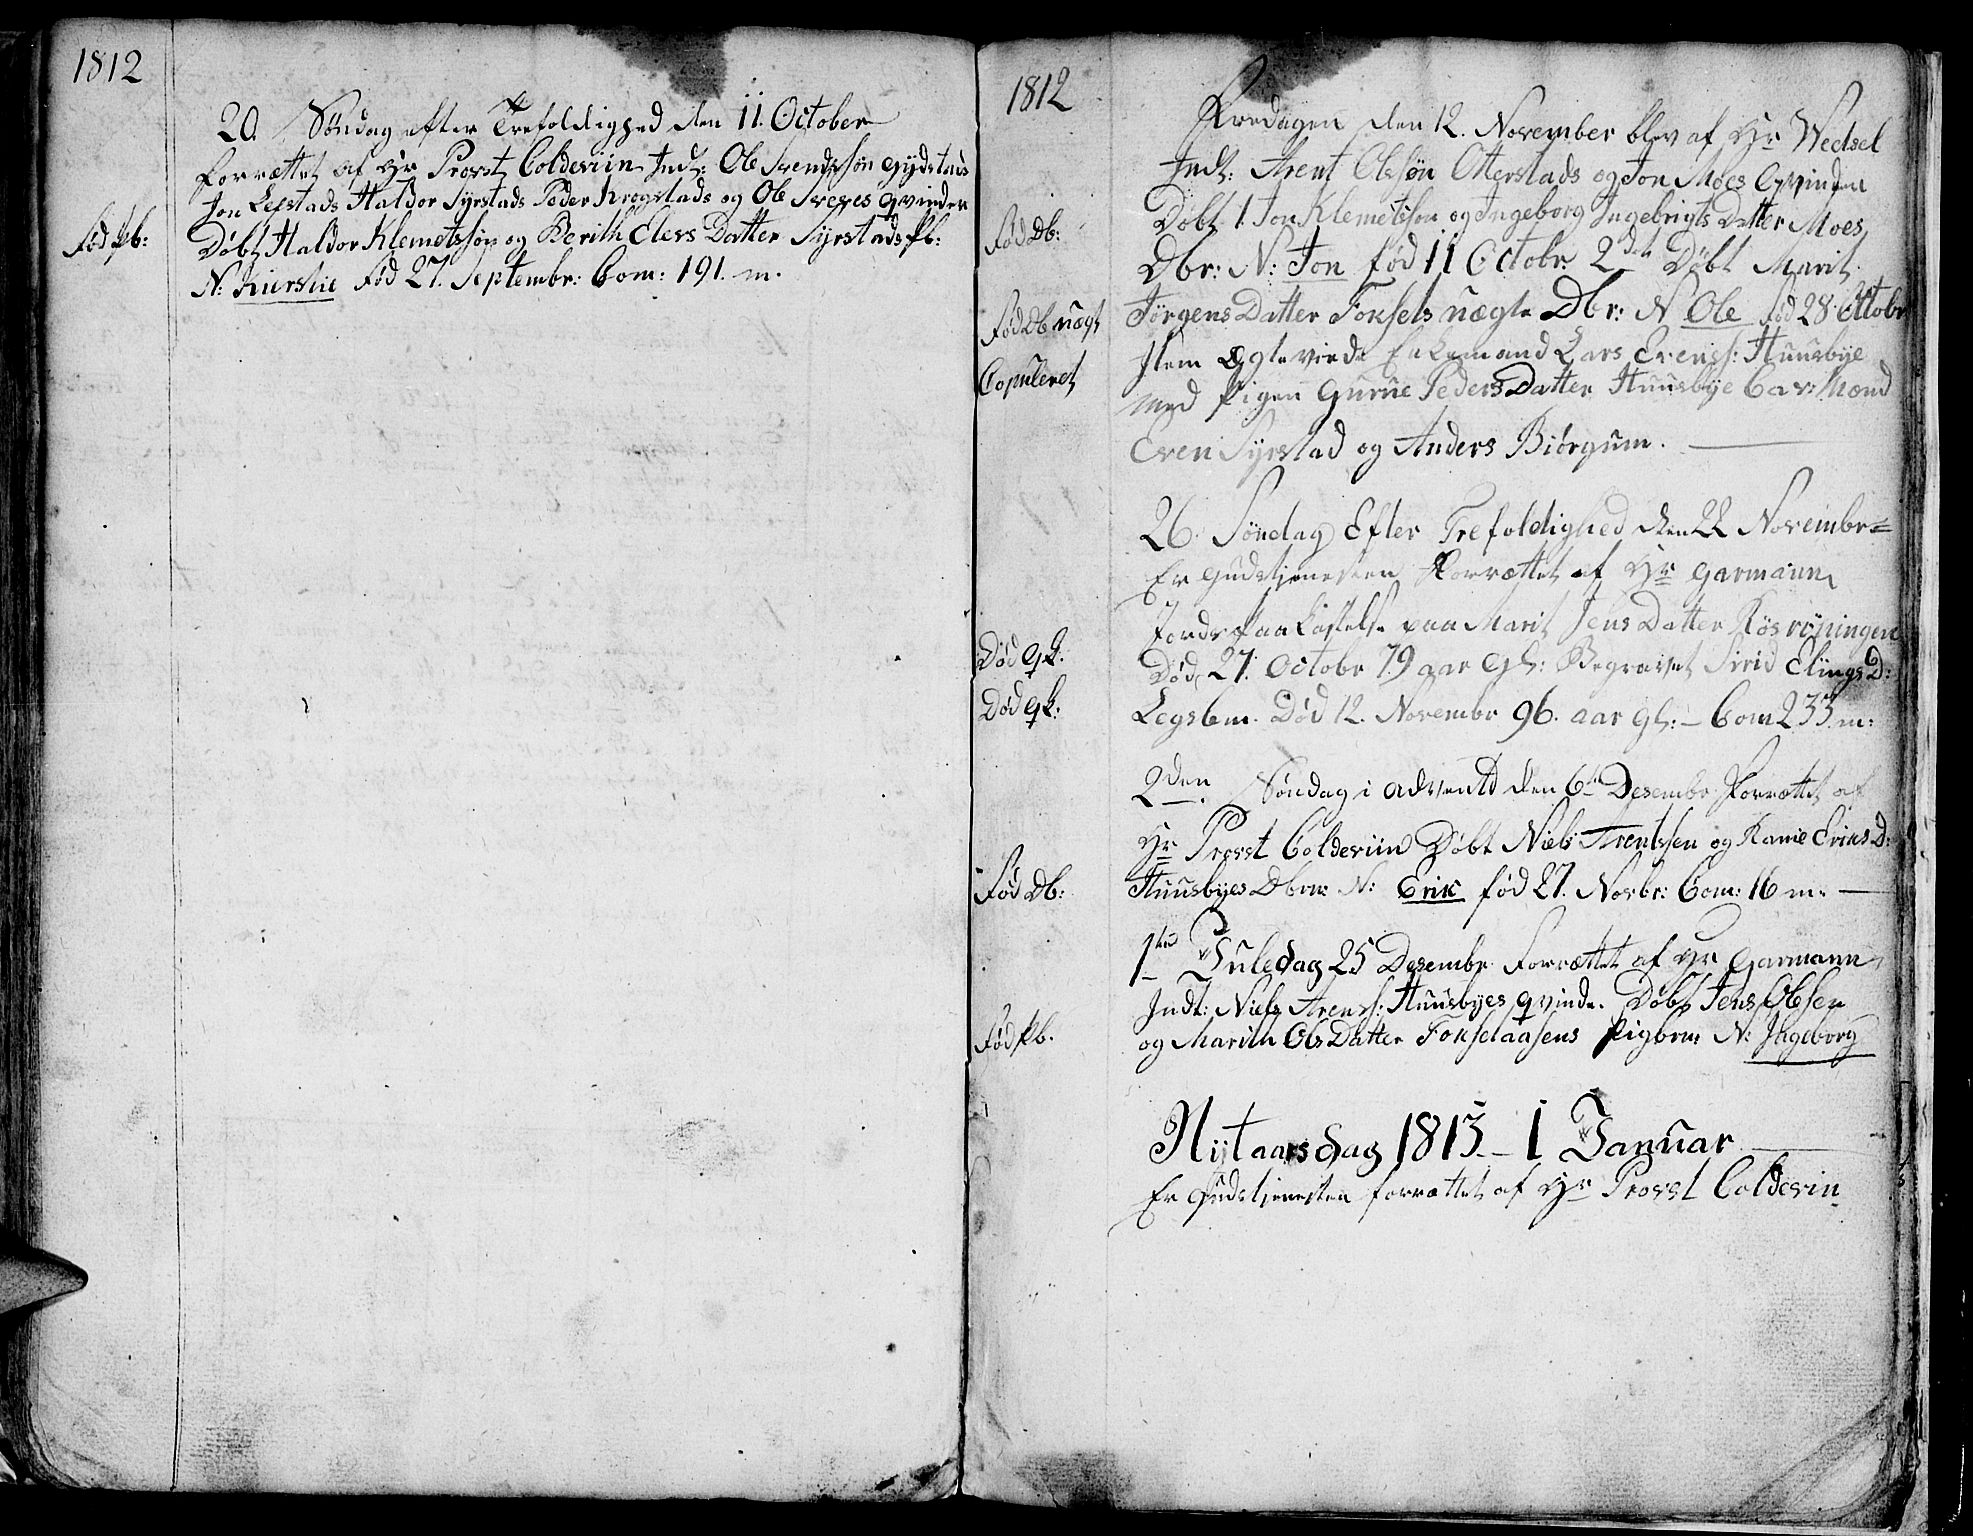 1812
20. Søndag efter Trefoldighed den 11. October
forrættet af Hr Provst Coldeviin Indl: Ole Svendssøn Gydstads
Jon Lefstads Haldor Syrstads Peder Krogstads og Ole Sveres Qvinder
Fød Pb:
Døbt Haldor Klemetssøn og Berith Elevs Datter Syrstads Pb:
N: Kierstie Fød 27. Septembr: Com: 191. m.
1812
Torsdagen den 12. November blev af Hr Wedsel
Indl: Arent Olssøn Otterstads og Jon Moes Qvinder
Fød Db:
Døbt 1. Jon Klemetsson og Ingeborg Ingebrigts Datter Moes
Dbr: N: Jon fød 11 Octobr: 2den Døbt Marit
Fød Db uægt
Jørgens Datter Foksels uægte Dbr: N Ole fød 28 Ottobr
Copuleret
Item Egteviede Enkemand Lars Evenss: Huusbye
med Pigen Gurue Peders Datter Huusbye Cav: Mænd
Even Syrstad og Anders Biørgum.
26. Søndag Efter Trefoldighed den 22 Novembr=
Er Gudstjenesten Forrættet af Hr Garmann
Jords Paakastelse paa Marit Jens Datter Røsrøningen
Død qk:
Død 27. Octobr 79 aar Gl: Begravet Sirid Elings D:
Død qk:
Legslem. Død 12. Novembr 96. aar Gl: - Com 233 m:
2den. Søndag i Adventd den 6te Desembr Forrættet af
Hr Provst Coldeviin Døbt Niels Arentssen og Ranie Eriks D:
Fød Db:
Huusbyes Dbrn: N: Erik fød 27. Novbr: Com: 16 m.
1ste Juledag 25 Desembr Forrættet af Hr Garmann
Indl: Niels Arents: Huusbyes qvinde. Døbt Jens Olsen
Fød Pb.
og Marith Ols Datter Fokselaasens Pigbrn: N: Ingeborg
Nytaarsdag 1813 - 1 Januar
Er Gudstjenesten forrættet af Hr Provst Coldevin